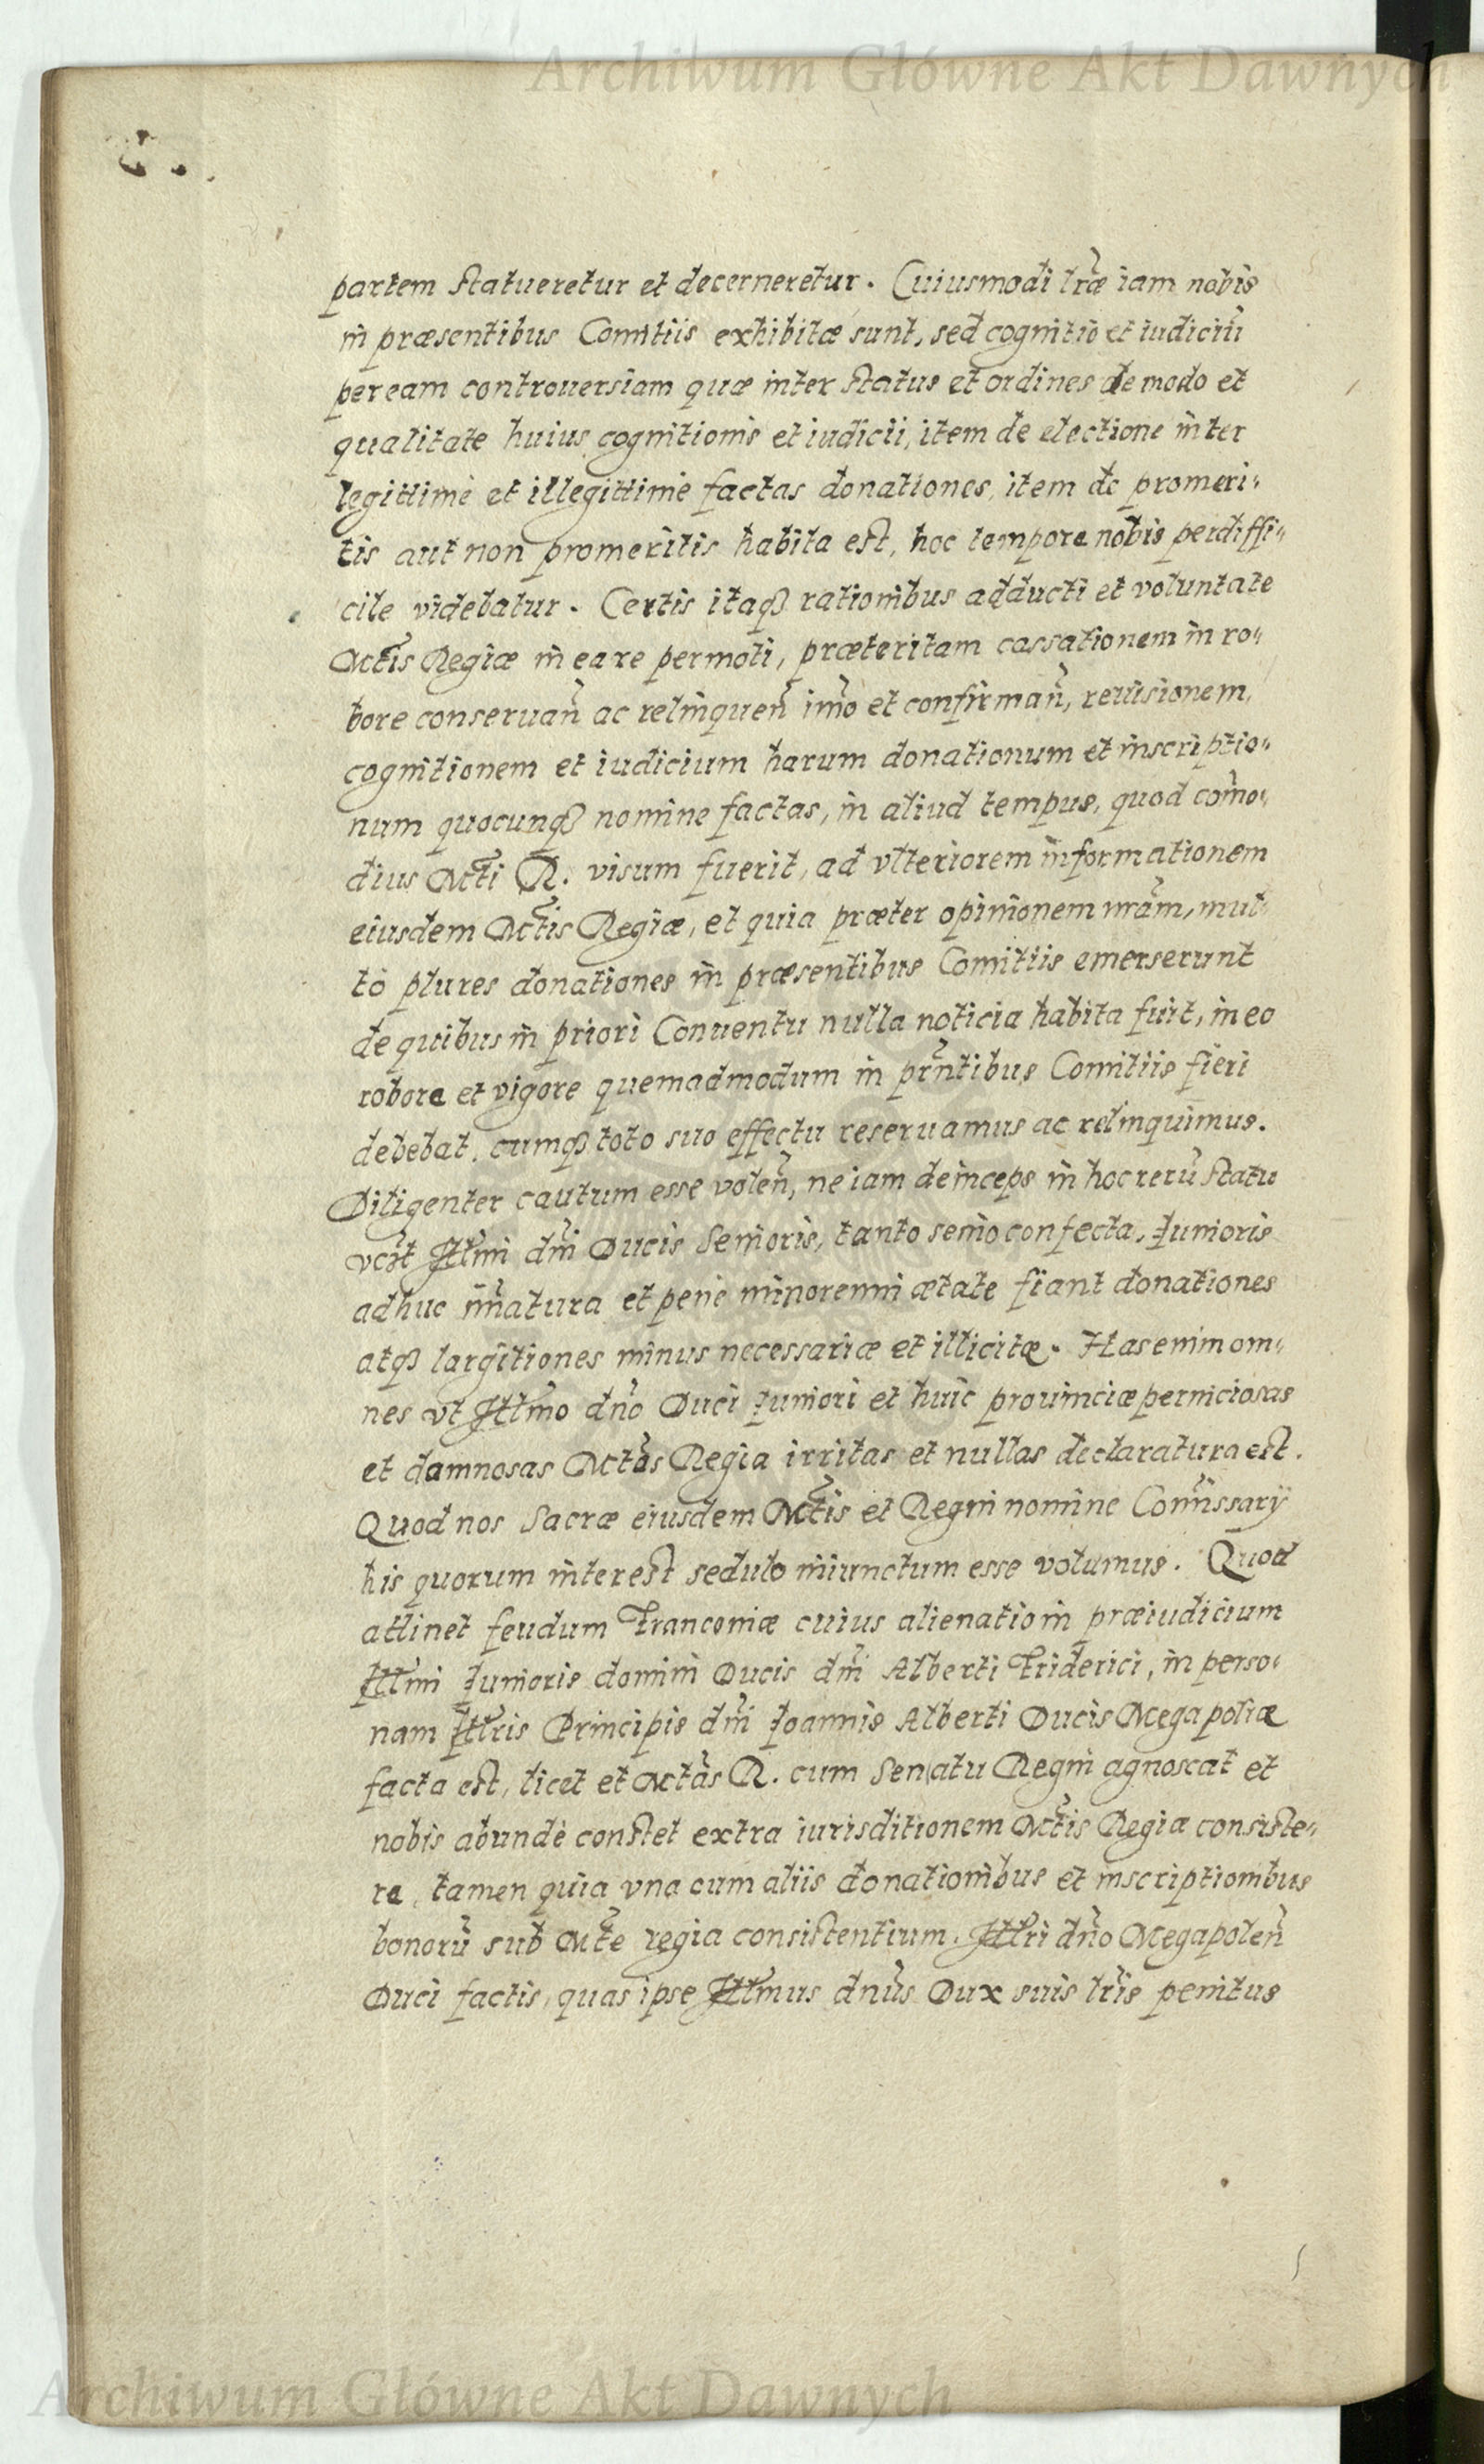 Archiwum Główne Akt Dawnych
partem statueretur et decerneretur. Cuiusmodi lr̃æ iam nobis
in præsentibus Comitiis exhibitæ sunt, sed cognitio et iudiciũ
per eam controuersiam quæ inter status et ordines de modo et
qualitate huius cognitionis et iudicii, item de electione inter
legittimè et illegittimè factas donationes, item de promeri-
tis aut non promeritis habita est, hoc tempore nobis perdiffi-
cile videbatur. Certis itaqꝫ rationibus adducti et voluntate
Mtĩs Regiæ in ea re permoti, præteritam cassationem in ro-
bore conseruañ ac relinqueñ imò et confirmañ, reuisionem,
cognitionem et iudicium harum donationum et inscriptio-
num quocunqꝫ nomine factas, in aliud tempus, quod com̃o-
dius Mtĩ R. visum fuerit, ad vlteriorem informationem
eiusdem Mtĩs Regiæ, et quia præter opinionem nr̃am, mul-
tò plures donationes in præsentibus Comitiis emerserunt
de quibus in priori Conuentu nulla noticia habita fuit, in eo
robore et vigore quemadmodum in prñtibus Comitiis fieri
debebat, cumqꝫ toto suo effectu reseruamus ac relinquimus.
Diligenter cautum esse voleñ, ne iam deinceps in hoc rerũ statu
Illm̃i dñi Ducis Senioris, tanto senio confecta, Iunioris
adhuc im̃atura et penè minorenni ætate fiant donationes
atqꝫ largitiones minus necessariæ et illicitæ. Has enim om-
nes vt Illm̃o dño Duci Iuniori et huic prouinciæ perniciosas
et damnosas Mtãs Regia irritas et nullas declaratura est.
Quod nos Sacræ eiusdem Mtĩs et Regni nomine Com̃issarij
his quorum interest sedulo iniunctum esse volumus. Quod
attinet feudum Franconiæ cuius alienatio in præiudicium
Illm̃i Iunioris domini Ducis dñi Alberti Friderici, in perso-
nam Illris Principis dñi Ioannis Alberti Ducis Megapoliæ
facta est, licet et Mtãs R. cum Senatu Regni agnoscat et
nobis abundè constet extra iurisditionem Mtĩs Regiæ consiste-
re, tamen quia vna cum aliis donationibus et inscriptionibus
bonorũ sub Mtẽ regia consistentium, Illri dño Megapoleñ
Duci factis, quas ipse Illm̃us dñus Dux suis lr̃is penitus
Archiwum Główne Akt Dawnych